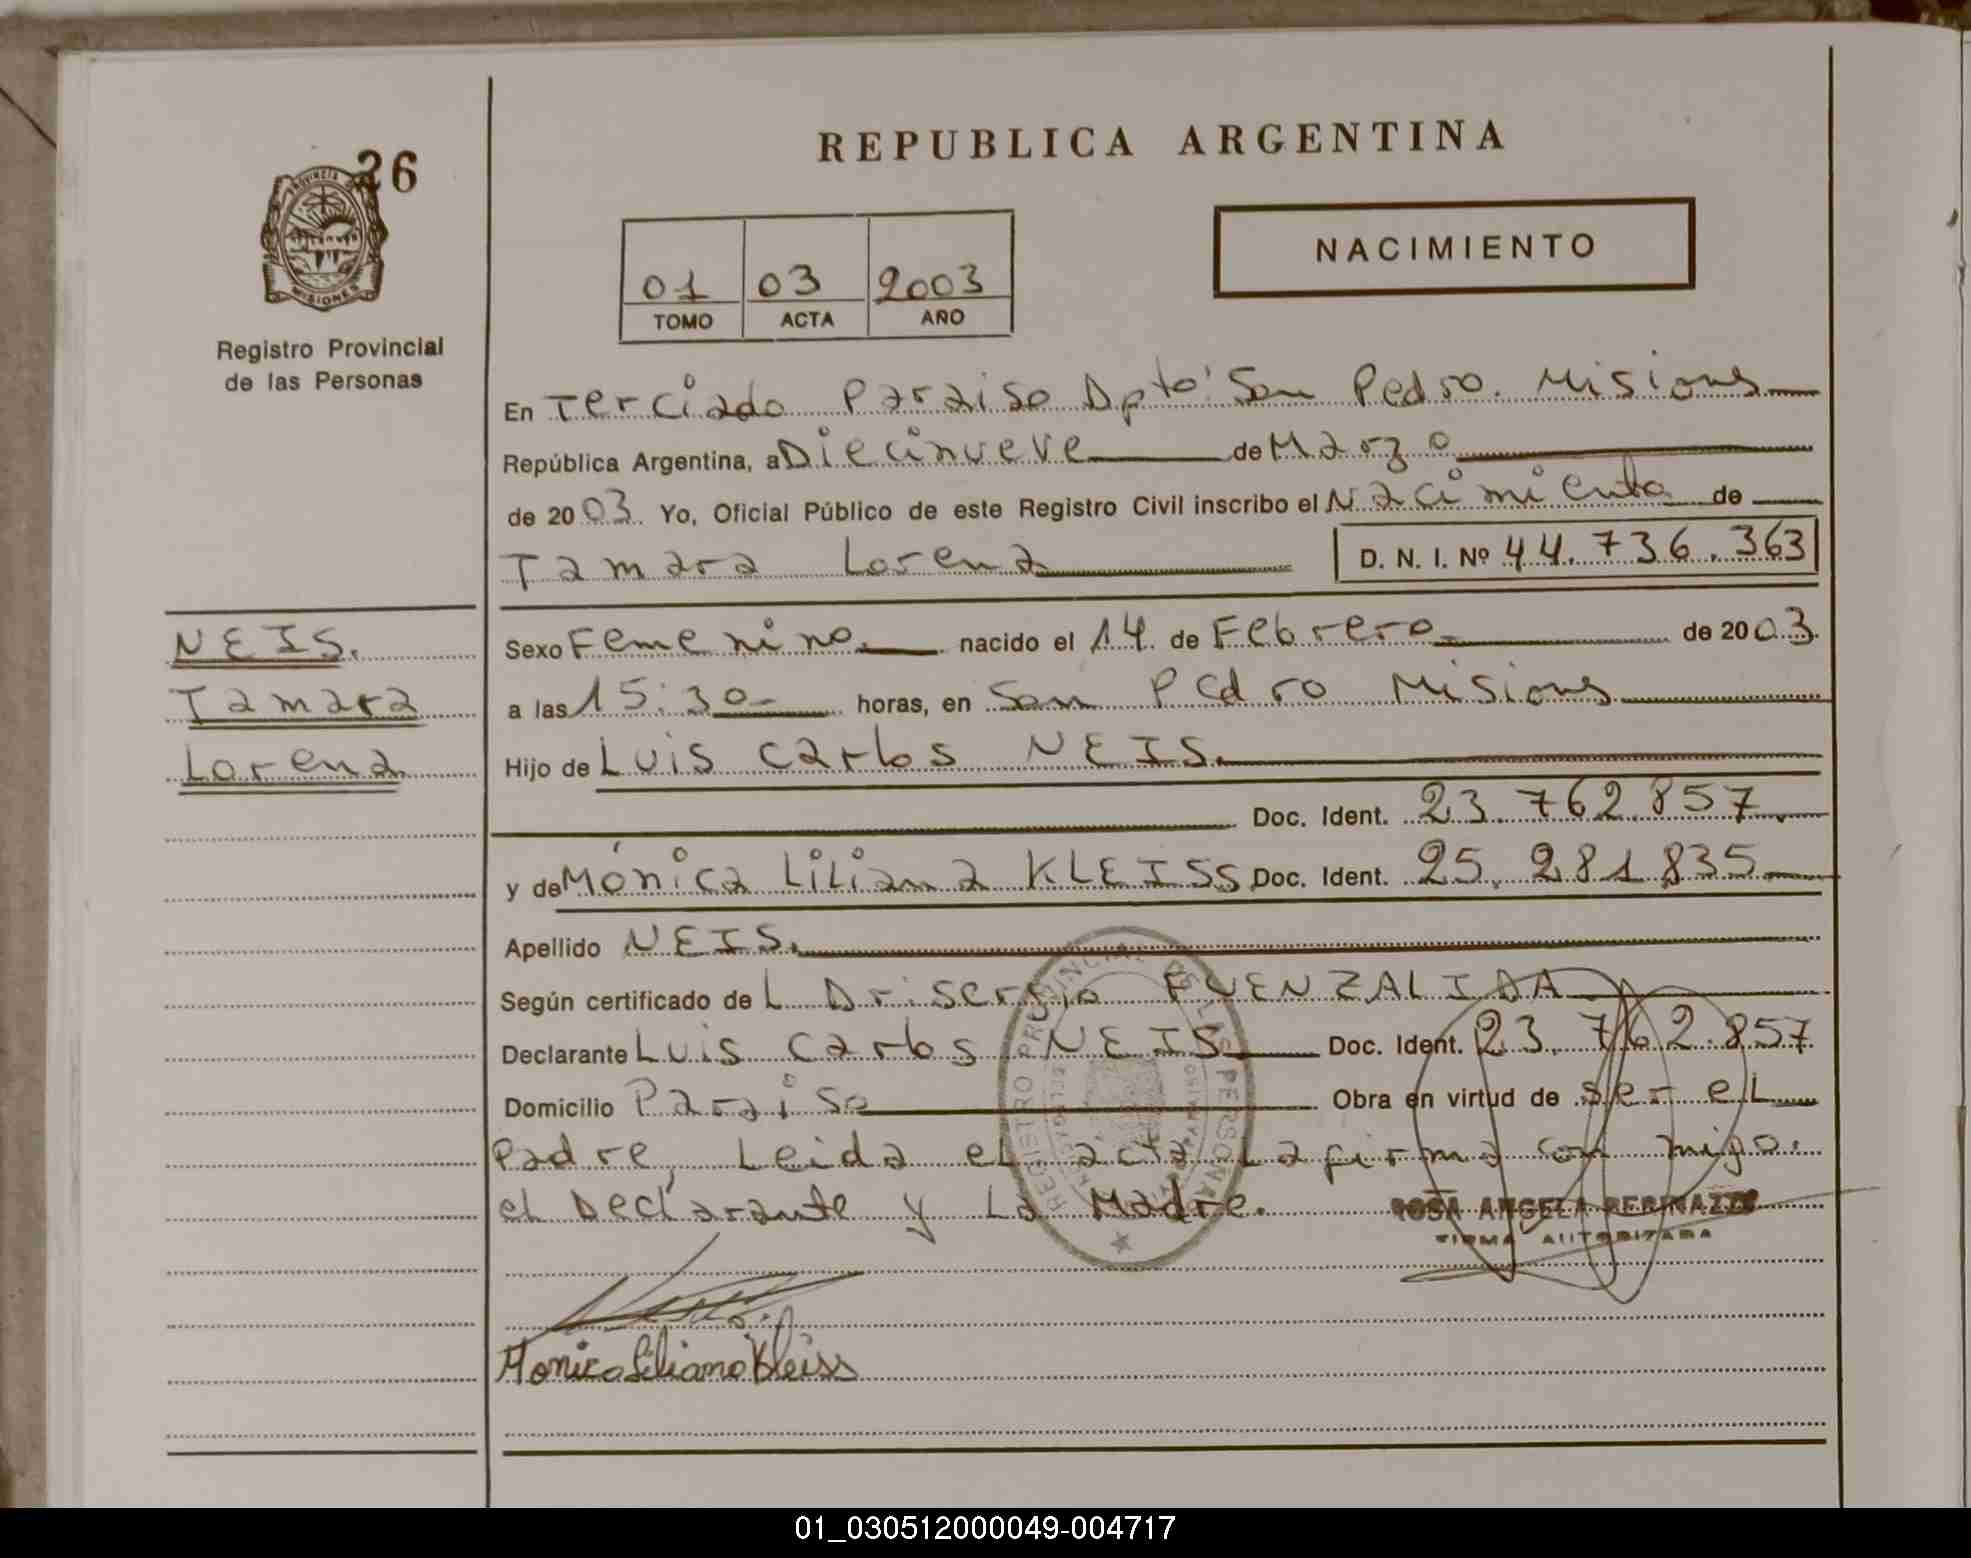 REPUBLICA ARGENTINA
26
PROVINCIA
MISIONES
Registro Provincial
de las Personas
NACIMIENTO
01 03 2003
TOMO ACTA AÑO
En Terciado Paraiso Dpto' San Pedro. Misiones
República Argentina, a Diecinueve de Marzo
de 2003. Yo, Oficial Público de este Registro Civil inscribo el Nacimiento de
Tamara Lorena D. N. I. Nº 44.736.363
NEIS.
Tamara
Lorena
Sexo Femenino. nacido el 14 de Febrero de 2003.
a las 15:30 horas, en San Pedro Misiones
Hijo de Luis Carlos NEIS.
Doc. Ident. 23.762.857.
y de Mónica Liliana KLEISS Doc. Ident. 25.281.835
Apellido NEIS.
Según certificado de L Dr: Sergio FUENZALIDA
Declarante Luis Carlos NEIS Doc. Ident. 23.762.857
Domicilio Paraiso Obra en virtud de ser el
Padre, Leida el acta La firma con migo:
el Declarante y La Madre.
REGISTRO PROVINCIAL DE LAS PERSONAS
ROSA ANGELA
FIRMA AUTORIZADA
Monica Liliana Kleiss
01_030512000049-004717